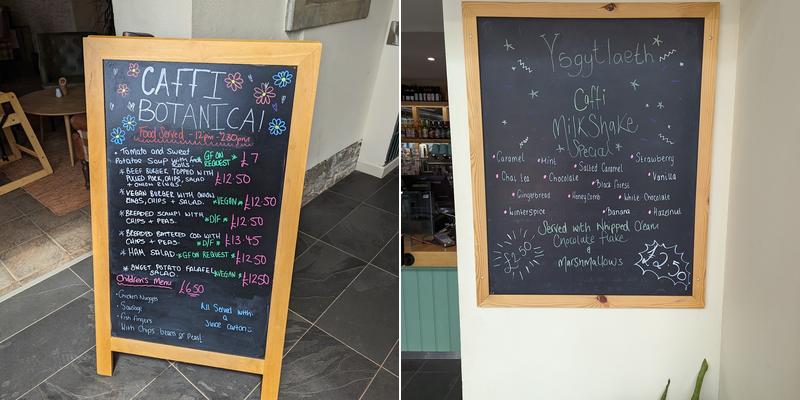 CAFFI
BOTANICA!
Food Served - 12pm - 2:30pm
• Tomato and Sweet
Potatoe Soup with
Rolls. GF ON REQUEST * £7
* BEEF BURGER TOPPED WITH
PULLED PORK, CHIPS, SALAD
+ ONION RINGS. £12.50
* VEGAN BURGER WITH ONION
RINGS, CHIPS + SALAD. *VEGAN* £12.50
* BREADED SCAMPI WITH
CHIPS + PEAS. *D/F* £12.50
* BREADED BATTERED COD WITH
CHIPS + PEAS. *D/F* £13.45
* HAM SALAD *GF ON REQUEST £12.50
* SWEET POTATO FALAFEL
SALAD. *VEGAN* £12.50
Children's Menu £6.50
• Chicken Nuggets
• Sausage
• Fish fingers
With Chips, beans or Peas!
All Served with
a
Juice carton :)
Ysgytlaeth
Caffi
MilkShake
Special
Caramel • Mint • Salted Caramel • Strawberry
Chai tea • Chocolate • Black Forest • Vanilla
• Gingerbread • Honeycomb • White Chocolate
• Winterspice • Banana • Hazelnut
Served with Whipped Cream
Chocolate flake
&
Marshmallows
£2.50
£2.50